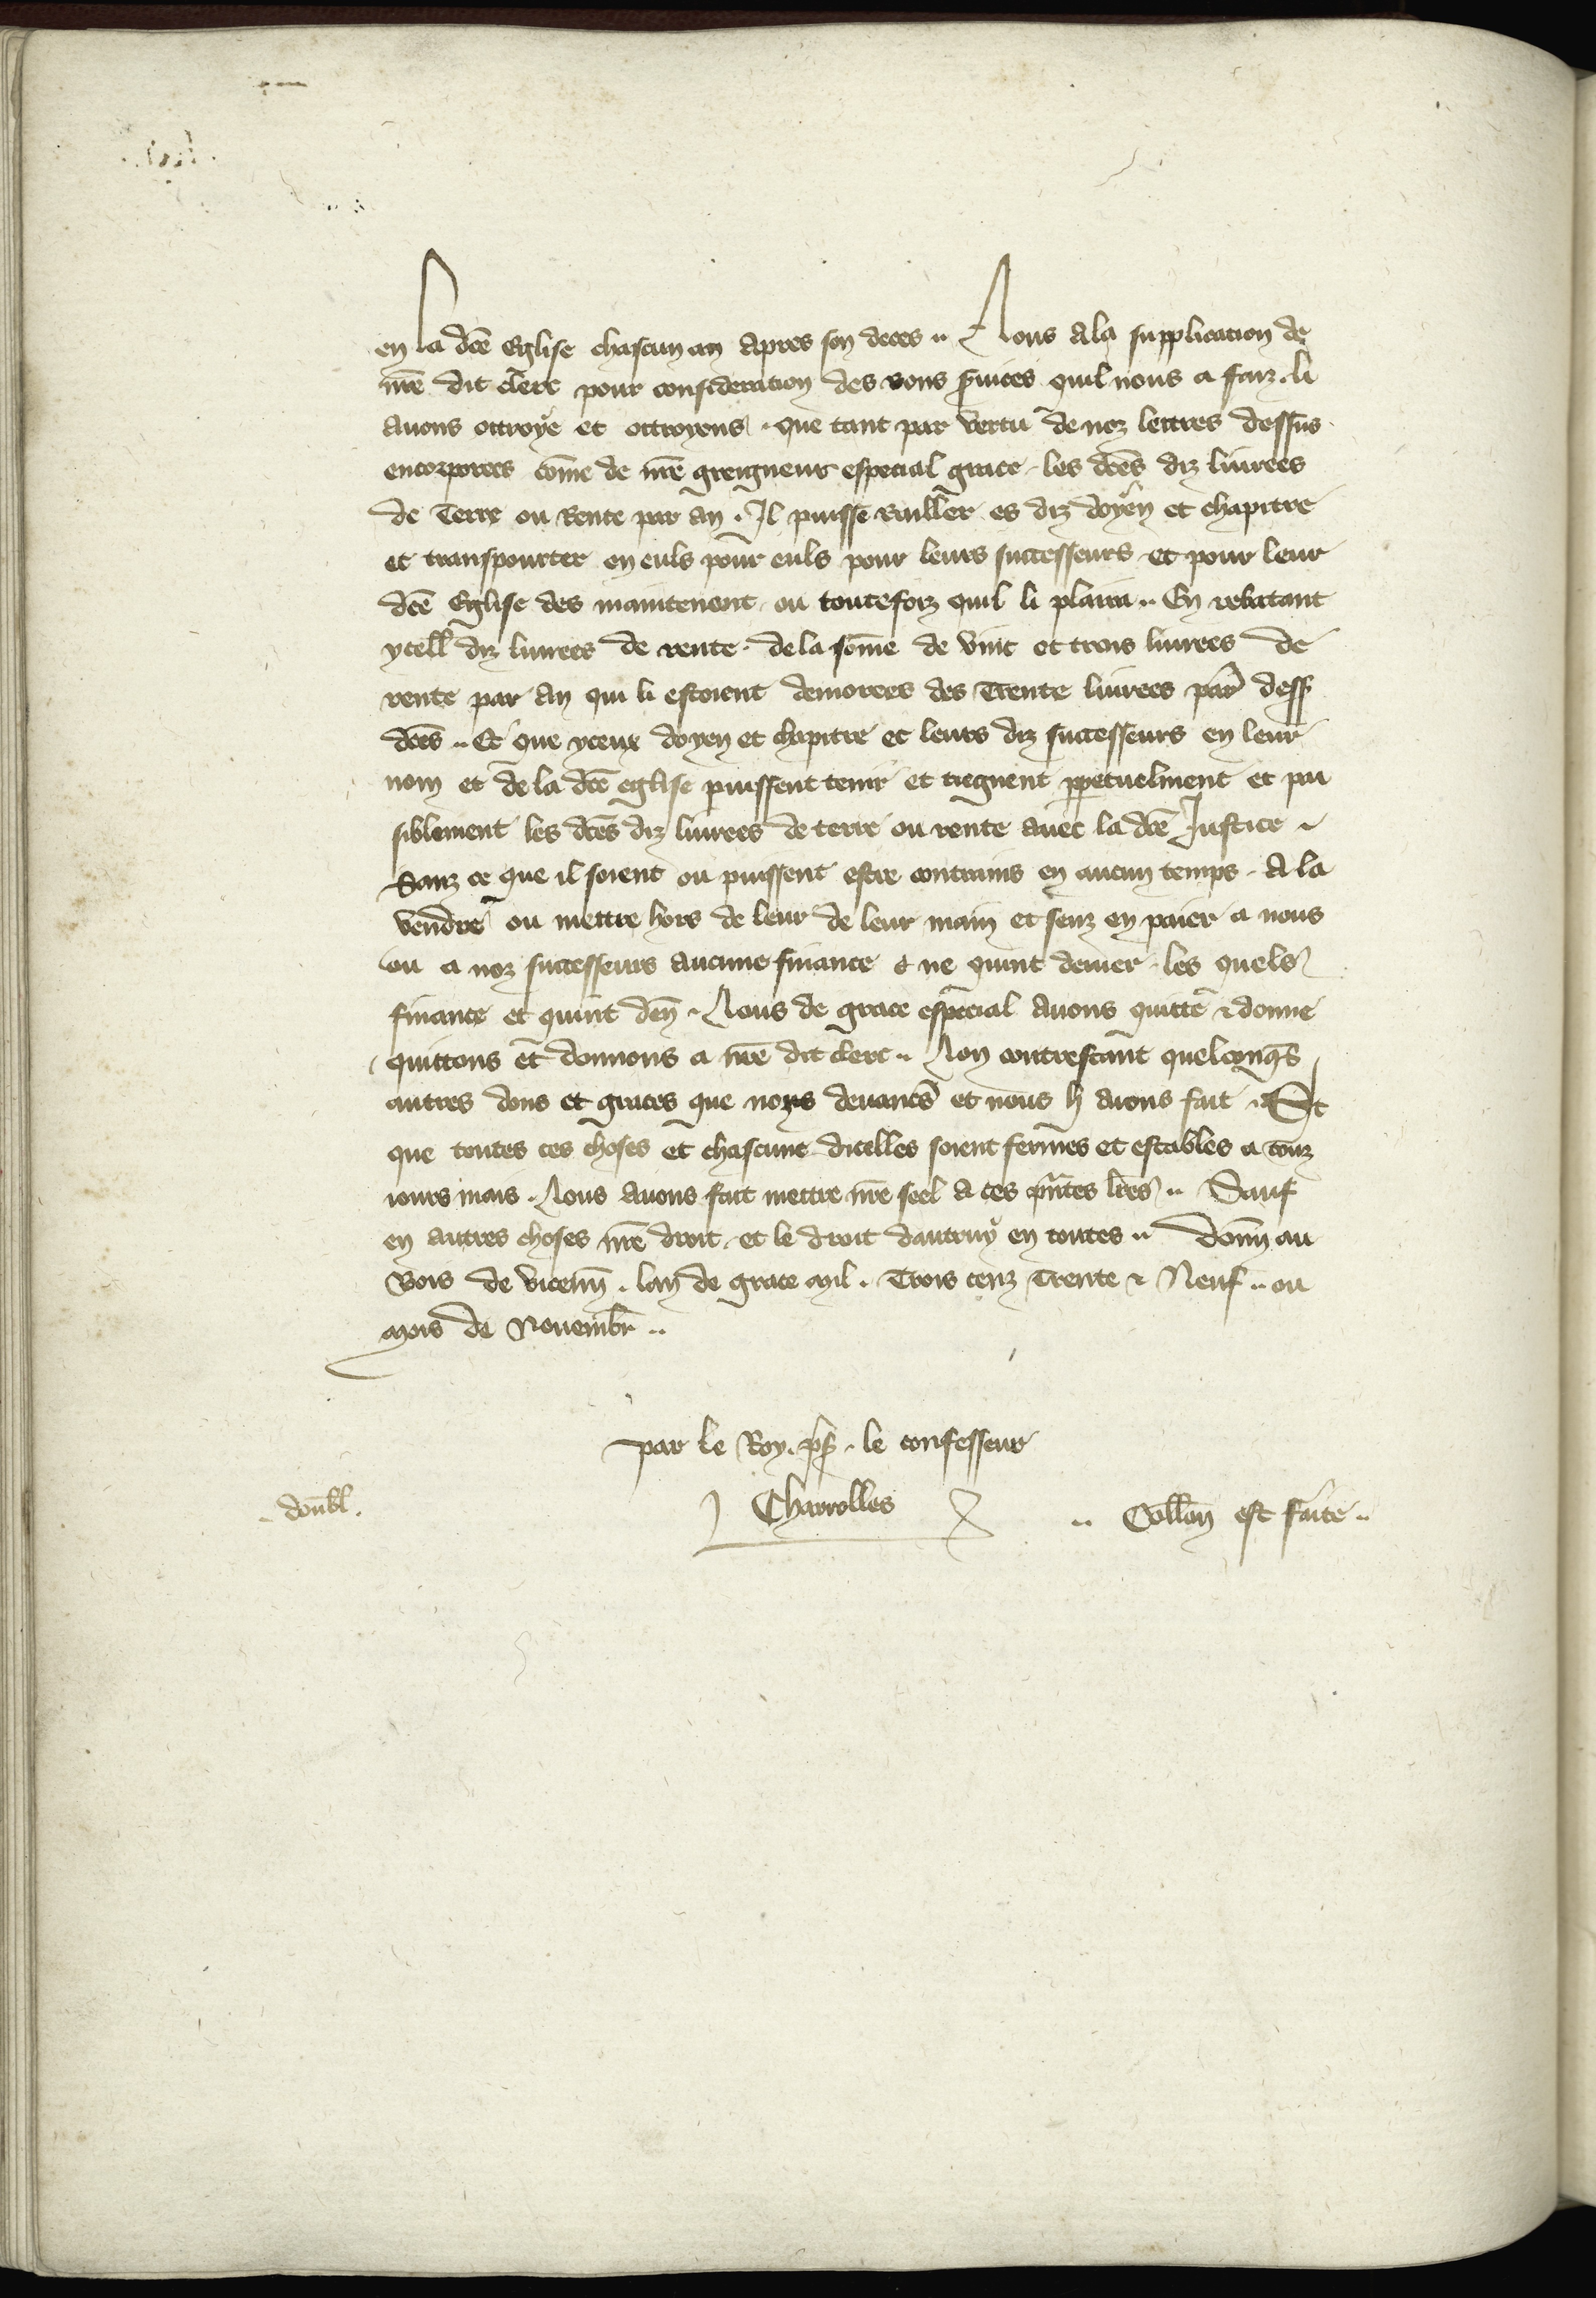 en la dce Eglise chascun an apres son deces .. Nous a la supplication de
nre dit clerc pour consideration des bons services quil nous a faiz . li
avons ottroye et ottroyons . que tant par vertu de noz lettres dessus
encorporees come de nre greigneur especial grace . les dces diz livrees
de Terre ou Rente par an . Il puisse baillier es diz doyen et chapitre
et transpourter en euls pour euls pour leurs successeurs et pour leur
dce Eglise des maintenent . ou touteforz quil li plaira .. En rebatant
ycell diz livrees de rente . de la some de vint et trois livrees de
rente par an qui li estoient demorees des Trente livrees par dess
dces .. Et que yceux doyen et chapitre et leurs diz successeurs en leur
nom et de la dce eglise puissent tenir et tiegnent ppetuelment et pai
siblement les dces diz livrees de terre ou rente avec la dce Justice .
Sanz ce que il soient ou puissent estre contrains en aucun temps . A la
vendre ou mettre hors de leur de leur main et senz en paier a nous
ou a noz successeurs aucune finance & ne quint denier . les quels
finance et quint den . Nous de grace especial avons quitte & donne
quittons et donnons a nre dit clerc .. Non contrestant quelconqs
autres dons et graces que noz devancs et nous li avons fait . Et
que toutes ces choses et chascune dicelles soient fermes et estables a touz
iours mais . Nous avons fait mettre nre seel a ces pntes lres .. Sauf
en autres choses nre droit . et le droit dautruy en toutes .. Donn au
Bois de vicenn . lan de grace mil . Trois cenz Trente & Neuf .. ou
mois de Novembr ..
par le Roy . ps . le confesseur
Charrolles
doubl .
.. Collon est faite ..